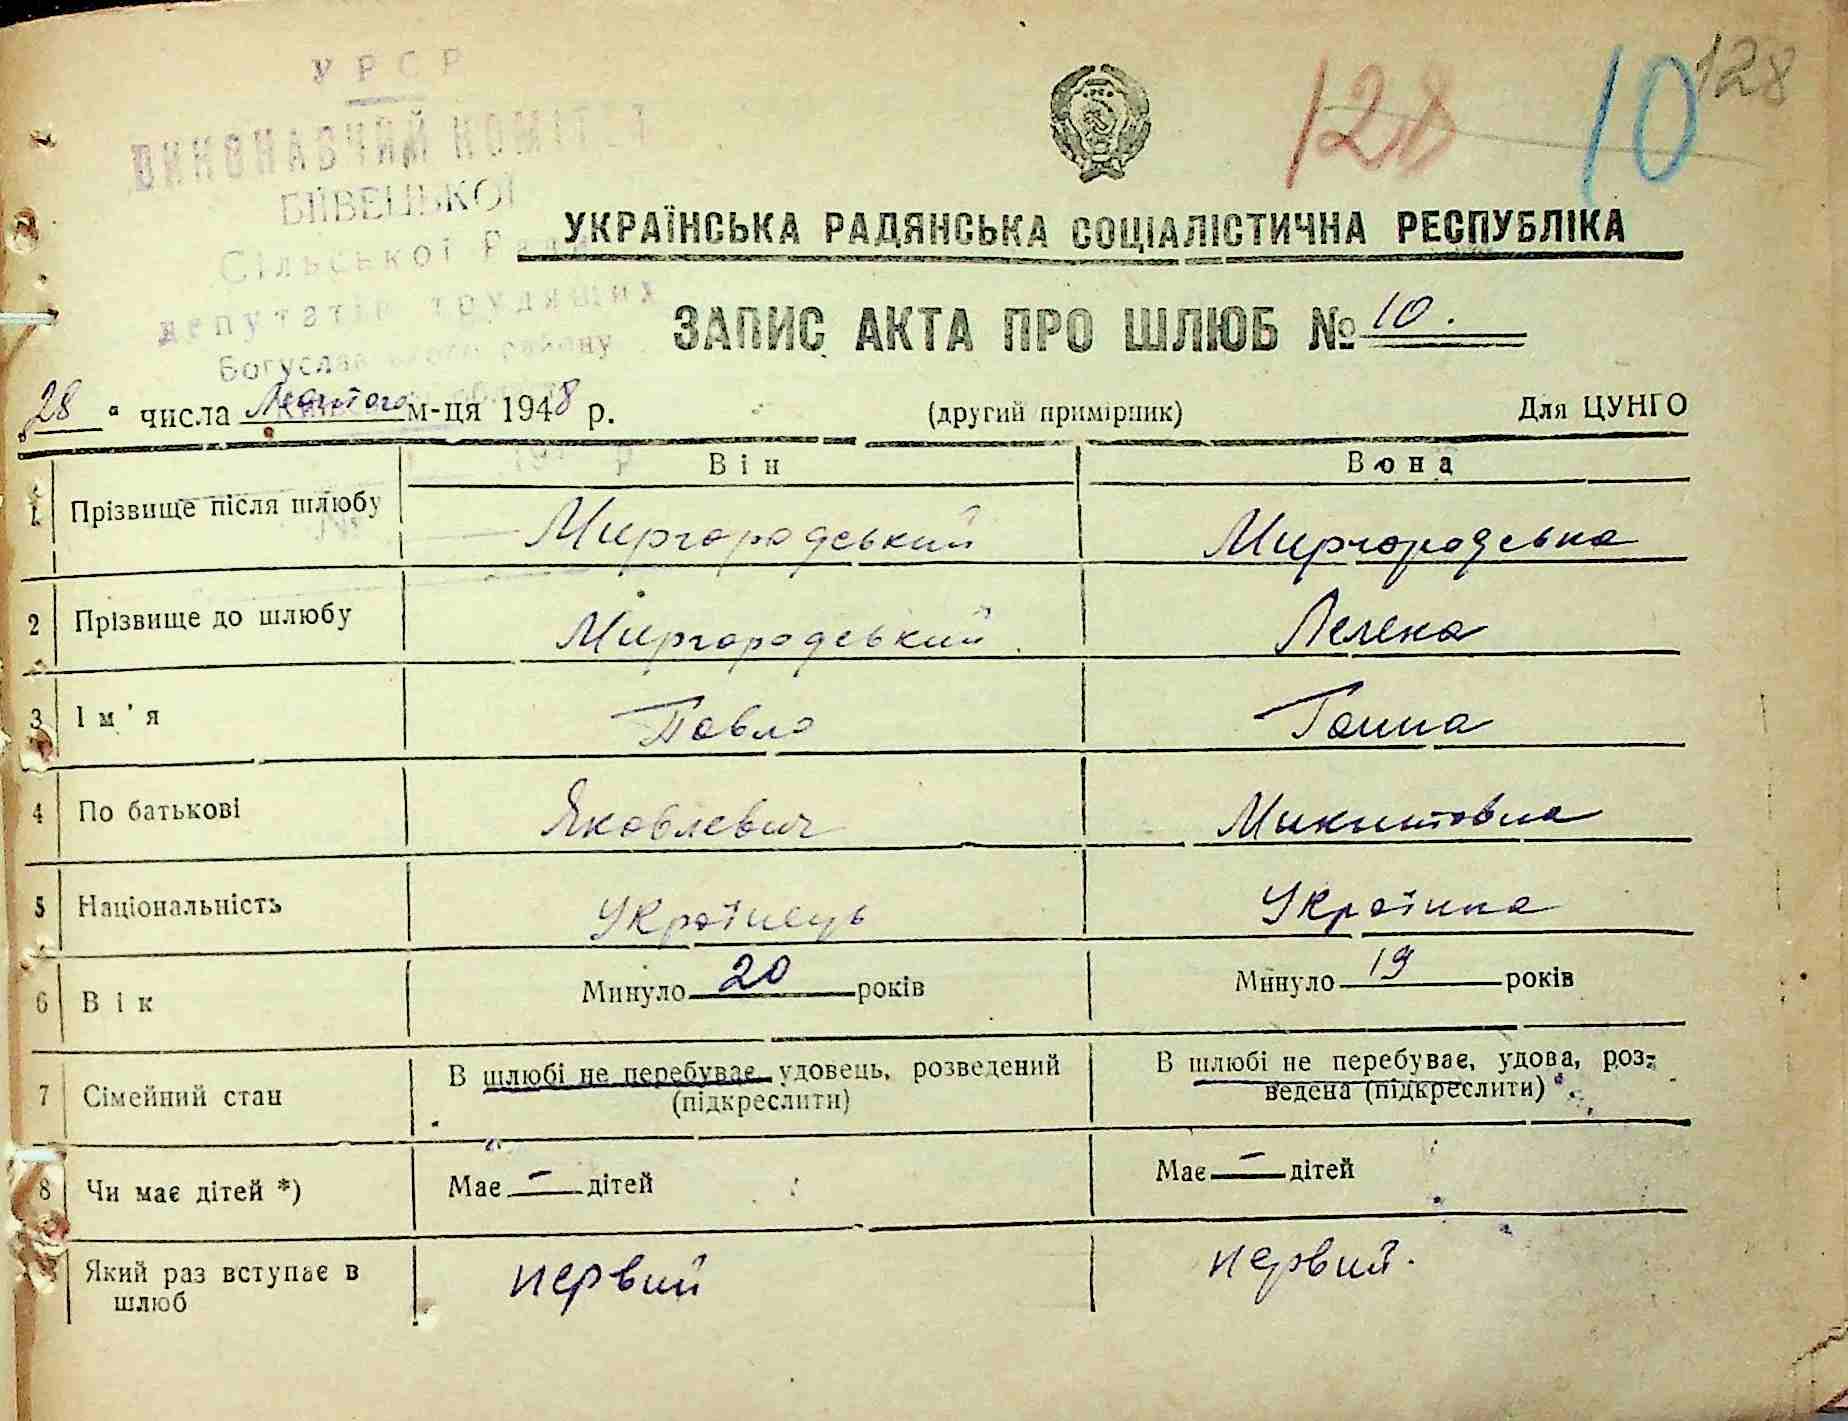 УРСР
ВИКОНАВЧИЙ КОМІТЕТ
БІЇВЕЦЬКОЇ
Сільської Ради
депутатів трудящих
Богуславського району
128
10
128
УКРАЇНСЬКА РАДЯНСЬКА СОЦІАЛІСТИЧНА РЕСПУБЛІКА
ЗАПИС АКТА ПРО ШЛЮБ № 10.
28 " числа Лютого м-ця 1948 р. (другий примірник) Для ЦУНГО
Він Вона
1 Прізвище після шлюбу Миргородський Миргородська
2 Прізвище до шлюбу Миргородський Лелека
3 Ім'я Павло Ганна
4 По батькові Яковлевич Микитовна
5 Національність Українець Українка
6 Вік Минуло 20 років Минуло 19 років
7 Сімейний стан В шлюбі не перебуває, удовець, розведений (підкреслити) В шлюбі не перебуває, удова, розведена (підкреслити)
8 Чи має дітей *) Має – дітей Має – дітей
Який раз вступає в шлюб первий первий.